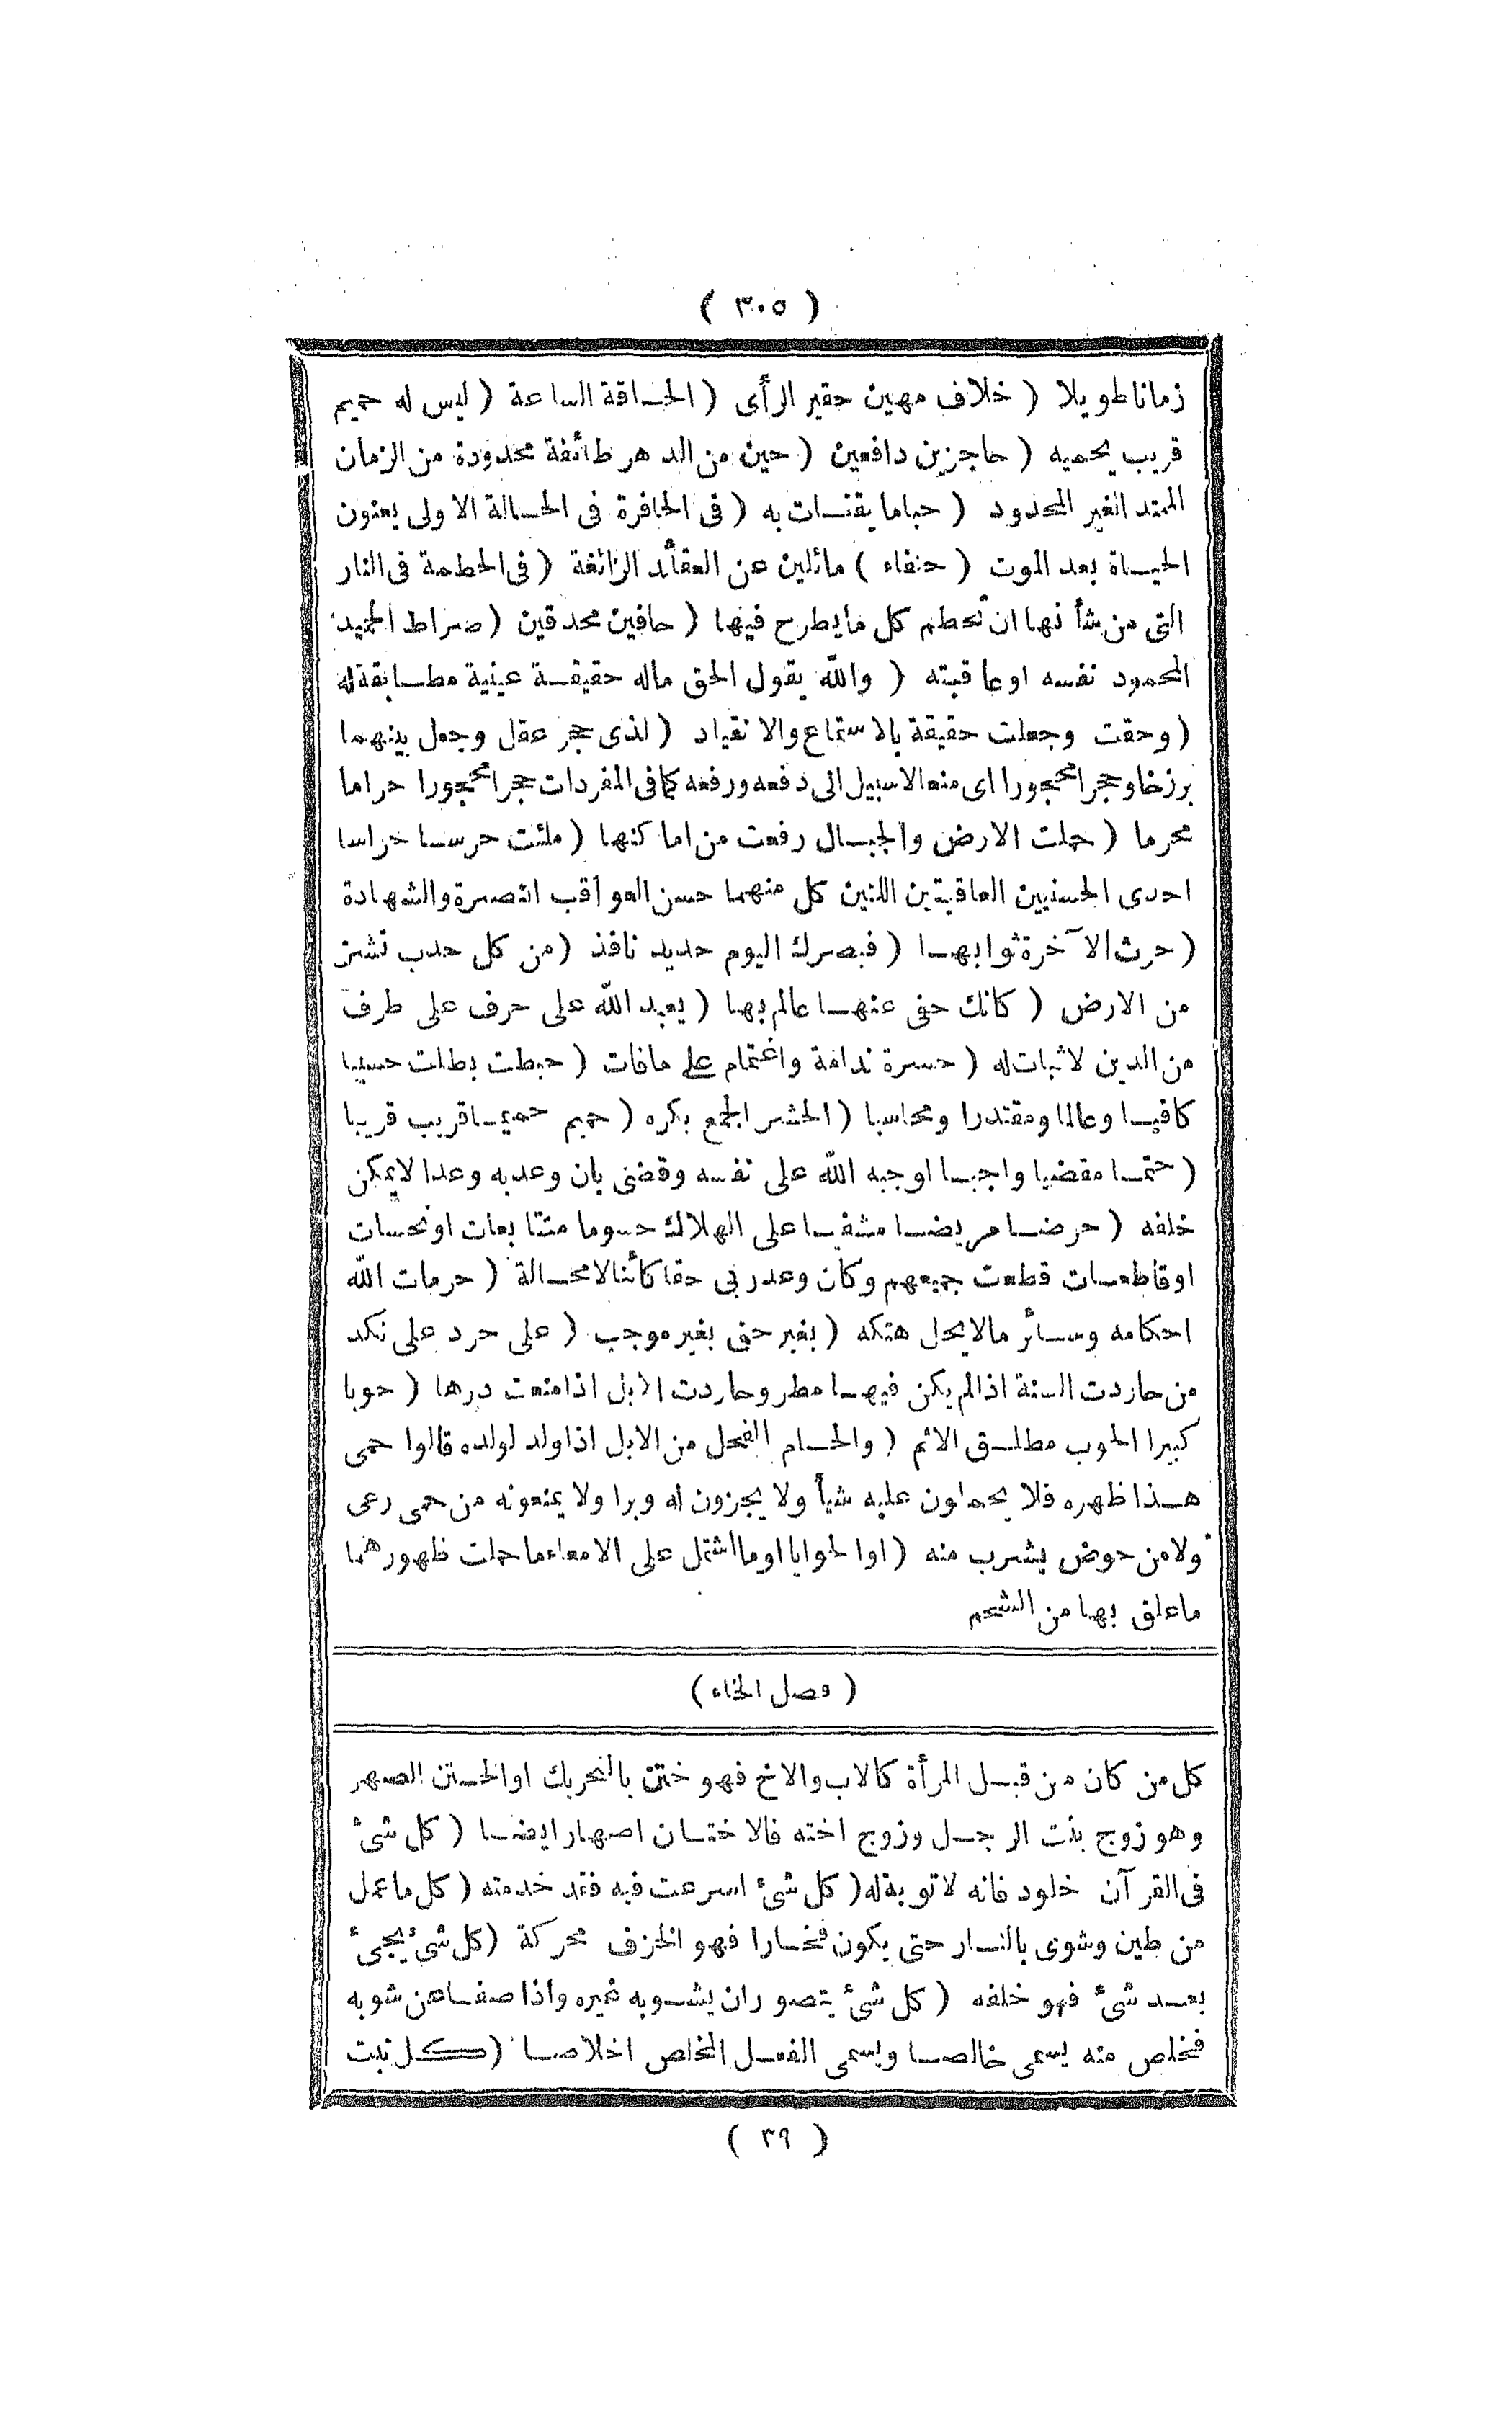 ( ٣٠٥ )
زمانا طويلا ( خلاف مهين حقير الرأى ( الحاقة الساعة ( ليس له حميم
قريب يحميه ( حاجزين دافعين ( حين من الدهر طائفة محدودة من الزمان
الممتد الغير المحدود ( حباما يقتات به ( فى الحافرة فى الحالة الاولى يعنون
الحياة بعد الموت ( حنفاء ) مائلين عن العقائد الزائغة ( فى الحطمة فى النار
التى من شأنها ان تحطم كل ما يطرح فيها ( حافين محدقين ( صراط الحميد
المحمود نفسه او عاقبته ( والله يقول الحق ماله حقيقة عينية مطابقة له
( وحقت وجعلت حقيقة بالاستماع والانقياد ( لذى حجر عقل وجعل بينهما
برزخا وحجرا محجورا اى منعا لاسبيل الى دفعه ورفعه كما فى المفردات حجرا محجورا حراما
محرما ( حملت الارض والجبال رفعت من اماكنها ( ملئت حرسا حراسا
احدى الحسنيين العاقبتين اللتين كل منهما حسن العواقب النصرة والشهادة
( حرث الآخرة ثوابها ( فبصرك اليوم حديد نافذ ( من كل حدب نشز
من الارض ( كانك حفى عنها عالم بها ( يعبد الله على حرف على طرف
من الدين لا ثبات له ( حسرة ندامة واغتمام على مافات ( حبطت بطلت حسيبا
كافيا وعالما ومقتدرا ومحاسبا ( الحشر الجمع بكره ( حميم حميما قريب قريبا
( حتما مقضيا واجبا اوجبه الله على نفسه وقضى بان وعد به وعدا لايمكن
خلفه ( حرضا مريضا مشفيا على الهلاك حسوما متتابعات او نحسات
او قاطعات قطعت جميعهم وكان وعد ربى حقا كائنا لامحالة ( حرمات الله
احكامه وسائر مالا يحل هتكه ( بغير حق بغير موجب ( على حرد على نكد
من حاردت السنة اذا لم يكن فيها مطر وحاردت الابل اذا منعت درها ( حوبا
كبيرا الحوب مطلق الاثم ( والحام الفحل من الابل اذا ولد لولده قالوا حمى
هذا ظهره فلا يحملون عليه شيأ ولا يجزون له وبرا ولا يمنعونه من حمى رعى
ولا من حوض يشرب منه ( او الحوايا او ما اشتمل على الامعاء ما حملت ظهورهما
ماعلق بها من الشحم
( فصل الخاء )
كل من كان من قبل المرأة كالاب والاخ فهو ختن بالتحريك او الختن الصهر
وهو زوج بنت الرجل وزوج اخته فالاختان اصهار ايضا ( كل شئ
فى القرآن خلود فانه لا توبة له ( كل شئ اسرعت فيه فقد خدمته ( كل ما عمل
من طين وشوى بالنار حتى يكون فخارا فهو الخزف محركة ( كل شئ يجئ
بعد شئ فهو خلفه ( كل شئ يتصور ان يشوبه غيره واذا صفا عن شوبه
فخلص منه يسمى خالصا ويسمى الفعل المخلص اخلاصا ( كل نبت
( ٣٩ )